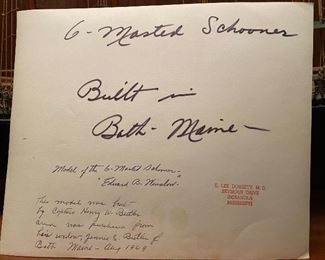 6-Masted Schooner
Built in
Bath- Maine-
Model of the 6-Masted Schooner-
"Edward B. Winslow".
This model was built
by Captain Henry W. Butler
and was purchased from
his widow, Jennie E. Butler of
Bath Maine - Aug 1969
S. LEE DORSETT, M. D.
SEYMOUR DRIVE
INDIANOLA
MISSISSIPPI